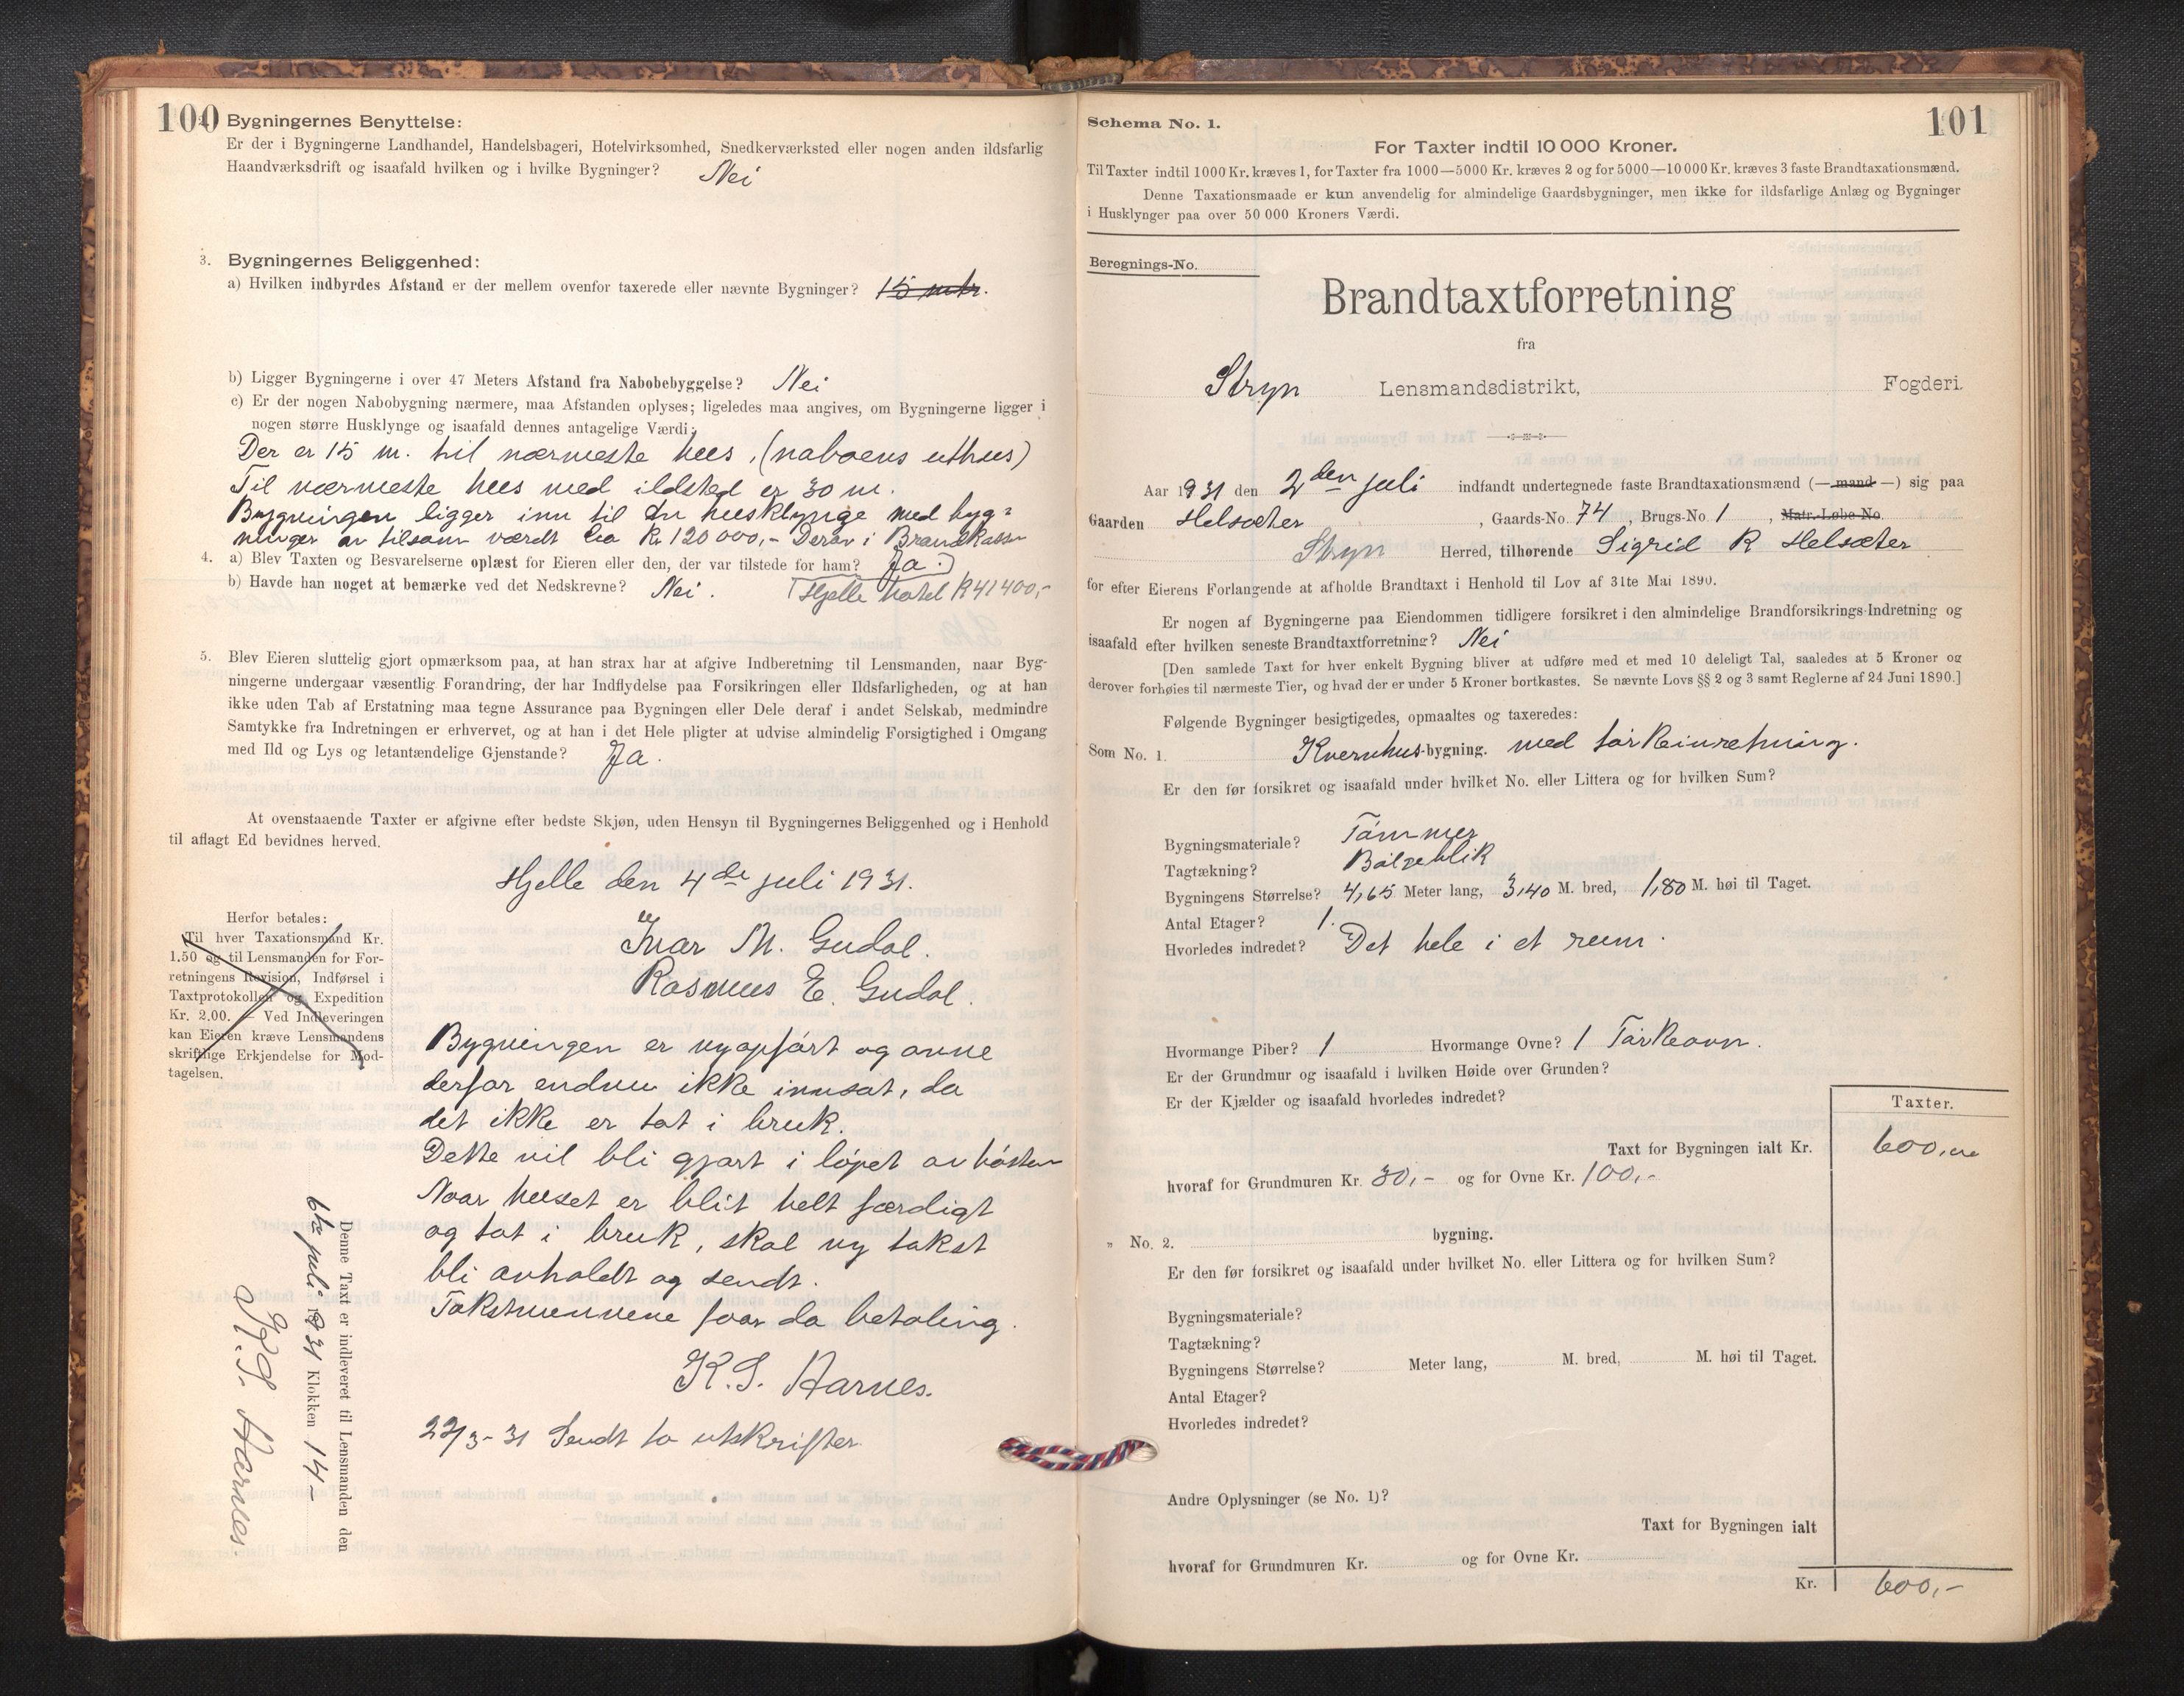 100
Bygningernes Benyttelse:
Er der i Bygningerne Landhandel, Handelsbageri, Hotelvirksomhed, Snedkerværksted eller nogen anden ildsfarlig
Haandværksdrift og isaafald hvilken og i hvilke Bygninger? Nei
3. Bygningernes Beliggenhed:
a) Hvilken indbyrdes Afstand er der mellem ovenfor taxerede eller nævnte Bygninger? 15 mtr.
b) Ligger Bygningerne i over 47 Meters Afstand fra Nabobebyggelse? Nei
c) Er der nogen Nabobygning nærmere, maa Afstanden oplyses; ligeledes maa angives, om Bygningerne ligger i
nogen større Husklynge og isaafald dennes antagelige Værdi;
Der er 15 m. til nærmeste hus, (naboens uthus)
Til nærmeste hus med ildsted er 30 m.
Bygningen ligger inn til en husklynge med byg-
ninger av tilsam værdt ca Kr 120 000,- Derav i Brandkassen
4. a) Blev Taxten og Besvarelserne oplæst for Eieren eller den, der var tilstede for ham? Ja.
b) Havde han noget at bemærke ved det Nedskrevne? Nei. (Hjelle hotel K 41400,-
5. Blev Eieren sluttelig gjort opmærksom paa, at han strax har at afgive Indberetning til Lensmanden, naar Byg-
ningerne undergaar væsentlig Forandring, der har Indflydelse paa Forsikringen eller Ildsfarligheden, og at han
ikke uden Tab af Erstatning maa tegne Assurance paa Bygningen eller Dele deraf i andet Selskab, medmindre
Samtykke fra Indretningen er erhvervet, og at han i det Hele pligter at udvise almindelig Forsigtighed i Omgang
med Ild og Lys og letantændelige Gjenstande? Ja.
At ovenstaaende Taxter er afgivne efter bedste Skjøn, uden Hensyn til Bygningernes Beliggenhed og i Henhold
til aflagt Ed bevidnes herved.
Hjelle den 4de juli 1931.
Ivar M. Gudal.
Rasmus E. Gudal.
Herfor betales:
Til hver Taxationsmand Kr.
1.50 og til Lensmanden for For-
retningens Revision, Indførsel i
Taxtprotokollen og Expedition
Kr. 2.00. — Ved Indleveringen
kan Eieren kræve Lensmandens
skriftlige Erkjendelse for Mod-
tagelsen.
Bygningen er nyopført og ovne
derfor endnu ikke innsat, da
det ikke er tat i bruk.
Dette vil bli gjort i løpet av høsten
Naar huset er blit helt færdigt
og tat i bruk, skal ny takst
bli avholdt og sendt.
Takstmennene faar da betaling.
K. S. Aarnes.
22/3-31 Sendt to utskrifter.
Denne Taxt er indleveret til Lensmanden den
6te juli 1931 Klokken 14-
K. S. Aarnes
101
Schema No. 1.
For Taxter indtil 10 000 Kroner.
Til Taxter indtil 1000 Kr. kræves 1, for Taxter fra 1000—5000 Kr. kræves 2 og for 5000—10000 Kr. kræves 3 faste Brandtaxationsmænd.
Denne Taxationsmaade er kun anvendelig for almindelige Gaardsbygninger, men ikke for ildsfarlige Anlæg og Bygninger
i Husklynger paa over 50 000 Kroners Værdi.
Beregnings-No.
Brandtaxtforretning
fra
Stryn Lensmandsdistrikt, Fogderi.
Aar 1931 den 2den juli indfandt undertegnede faste Brandtaxationsmænd (—mand—) sig paa
Gaarden Helsæter, Gaards-No. 74, Brugs-No. 1, Matr.-Løbe-No.
Stryn Herred, tilhørende Sigrid R Helsæter
for efter Eierens Forlangende at afholde Brandtaxt i Henhold til Lov af 31te Mai 1890.
Er nogen af Bygningerne paa Eiendommen tidligere forsikret i den almindelige Brandforsikrings-Indretning og
isaafald efter hvilken seneste Brandtaxtforretning? Nei
[Den samlede Taxt for hver enkelt Bygning bliver at udføre med et med 10 deleligt Tal, saaledes at 5 Kroner og
derover forhøies til nærmeste Tier, og hvad der er under 5 Kroner bortkastes. Se nævnte Lovs §§ 2 og 3 samt Reglerne af 24 Juni 1890.]
Følgende Bygninger besigtigedes, opmaaltes og taxeredes:
Som No. 1. Kvernhus-bygning. med tørkeinretning.
Er den før forsikret og isaafald under hvilket No. eller Littera og for hvilken Sum?
Bygningsmateriale? Tømmer
Tagtækning? Bølgeblik
Bygningens Størrelse? 4,65 Meter lang, 3,40 M. bred, 1,80 M. høi til Taget.
Antal Etager? 1.
Hvorledes indredet? Det hele i et rum.
Hvormange Piber? 1 Hvormange Ovne? 1 Tørkeovn.
Er der Grundmur og isaafald i hvilken Høide over Grunden?
Er der Kjælder og isaafald hvorledes indredet?
Taxter.
Taxt for Bygningen ialt Kr. 600,00
hvoraf for Grundmuren Kr. 30,- og for Ovne Kr. 100,-
" No. 2. bygning.
Er den før forsikret og isaafald under hvilket No. eller Littera og for hvilken Sum?
Bygningsmateriale?
Tagtækning?
Bygningens Størrelse? Meter lang, M. bred, M. høi til Taget.
Antal Etager?
Hvorledes indredet?
Andre Oplysninger (se No. 1)?
Taxt for Bygningen ialt
hvoraf for Grundmuren Kr. og for Ovne Kr.
Kr. 600,-